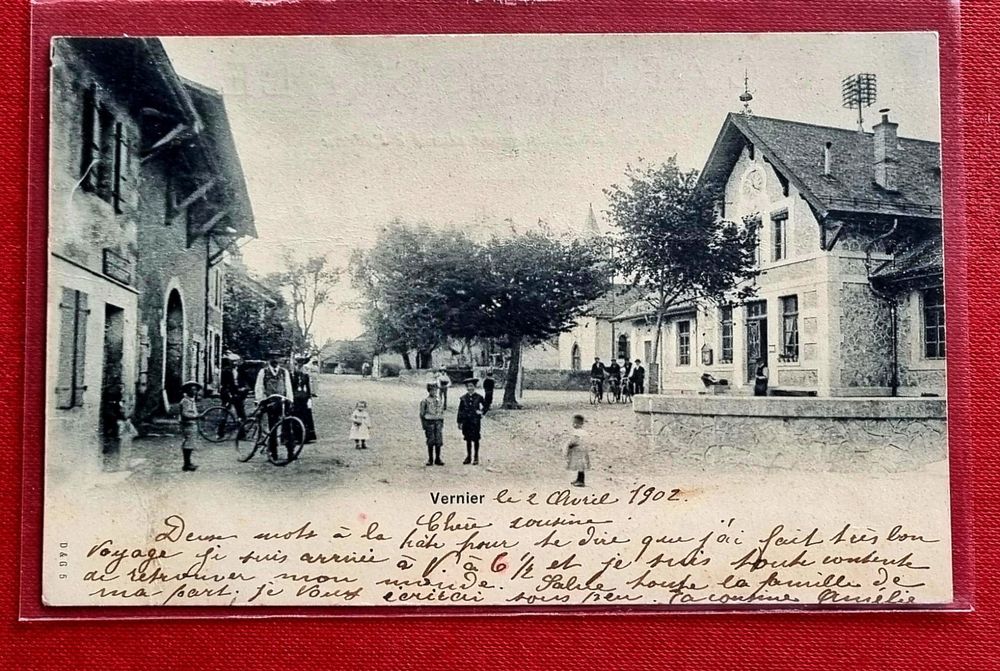 Vernier le 2 Avril 1902.
Chère cousine
Deux mots à la hâte pour te dire que j'ai fait très bon
voyage je suis arrivée à V. à 6 1/2 et je suis toute contente
de retrouver mon monde. Salue toute la famille de
ma part, je vous écrirai sous peu. Ta cousine Amélie
D & G 5